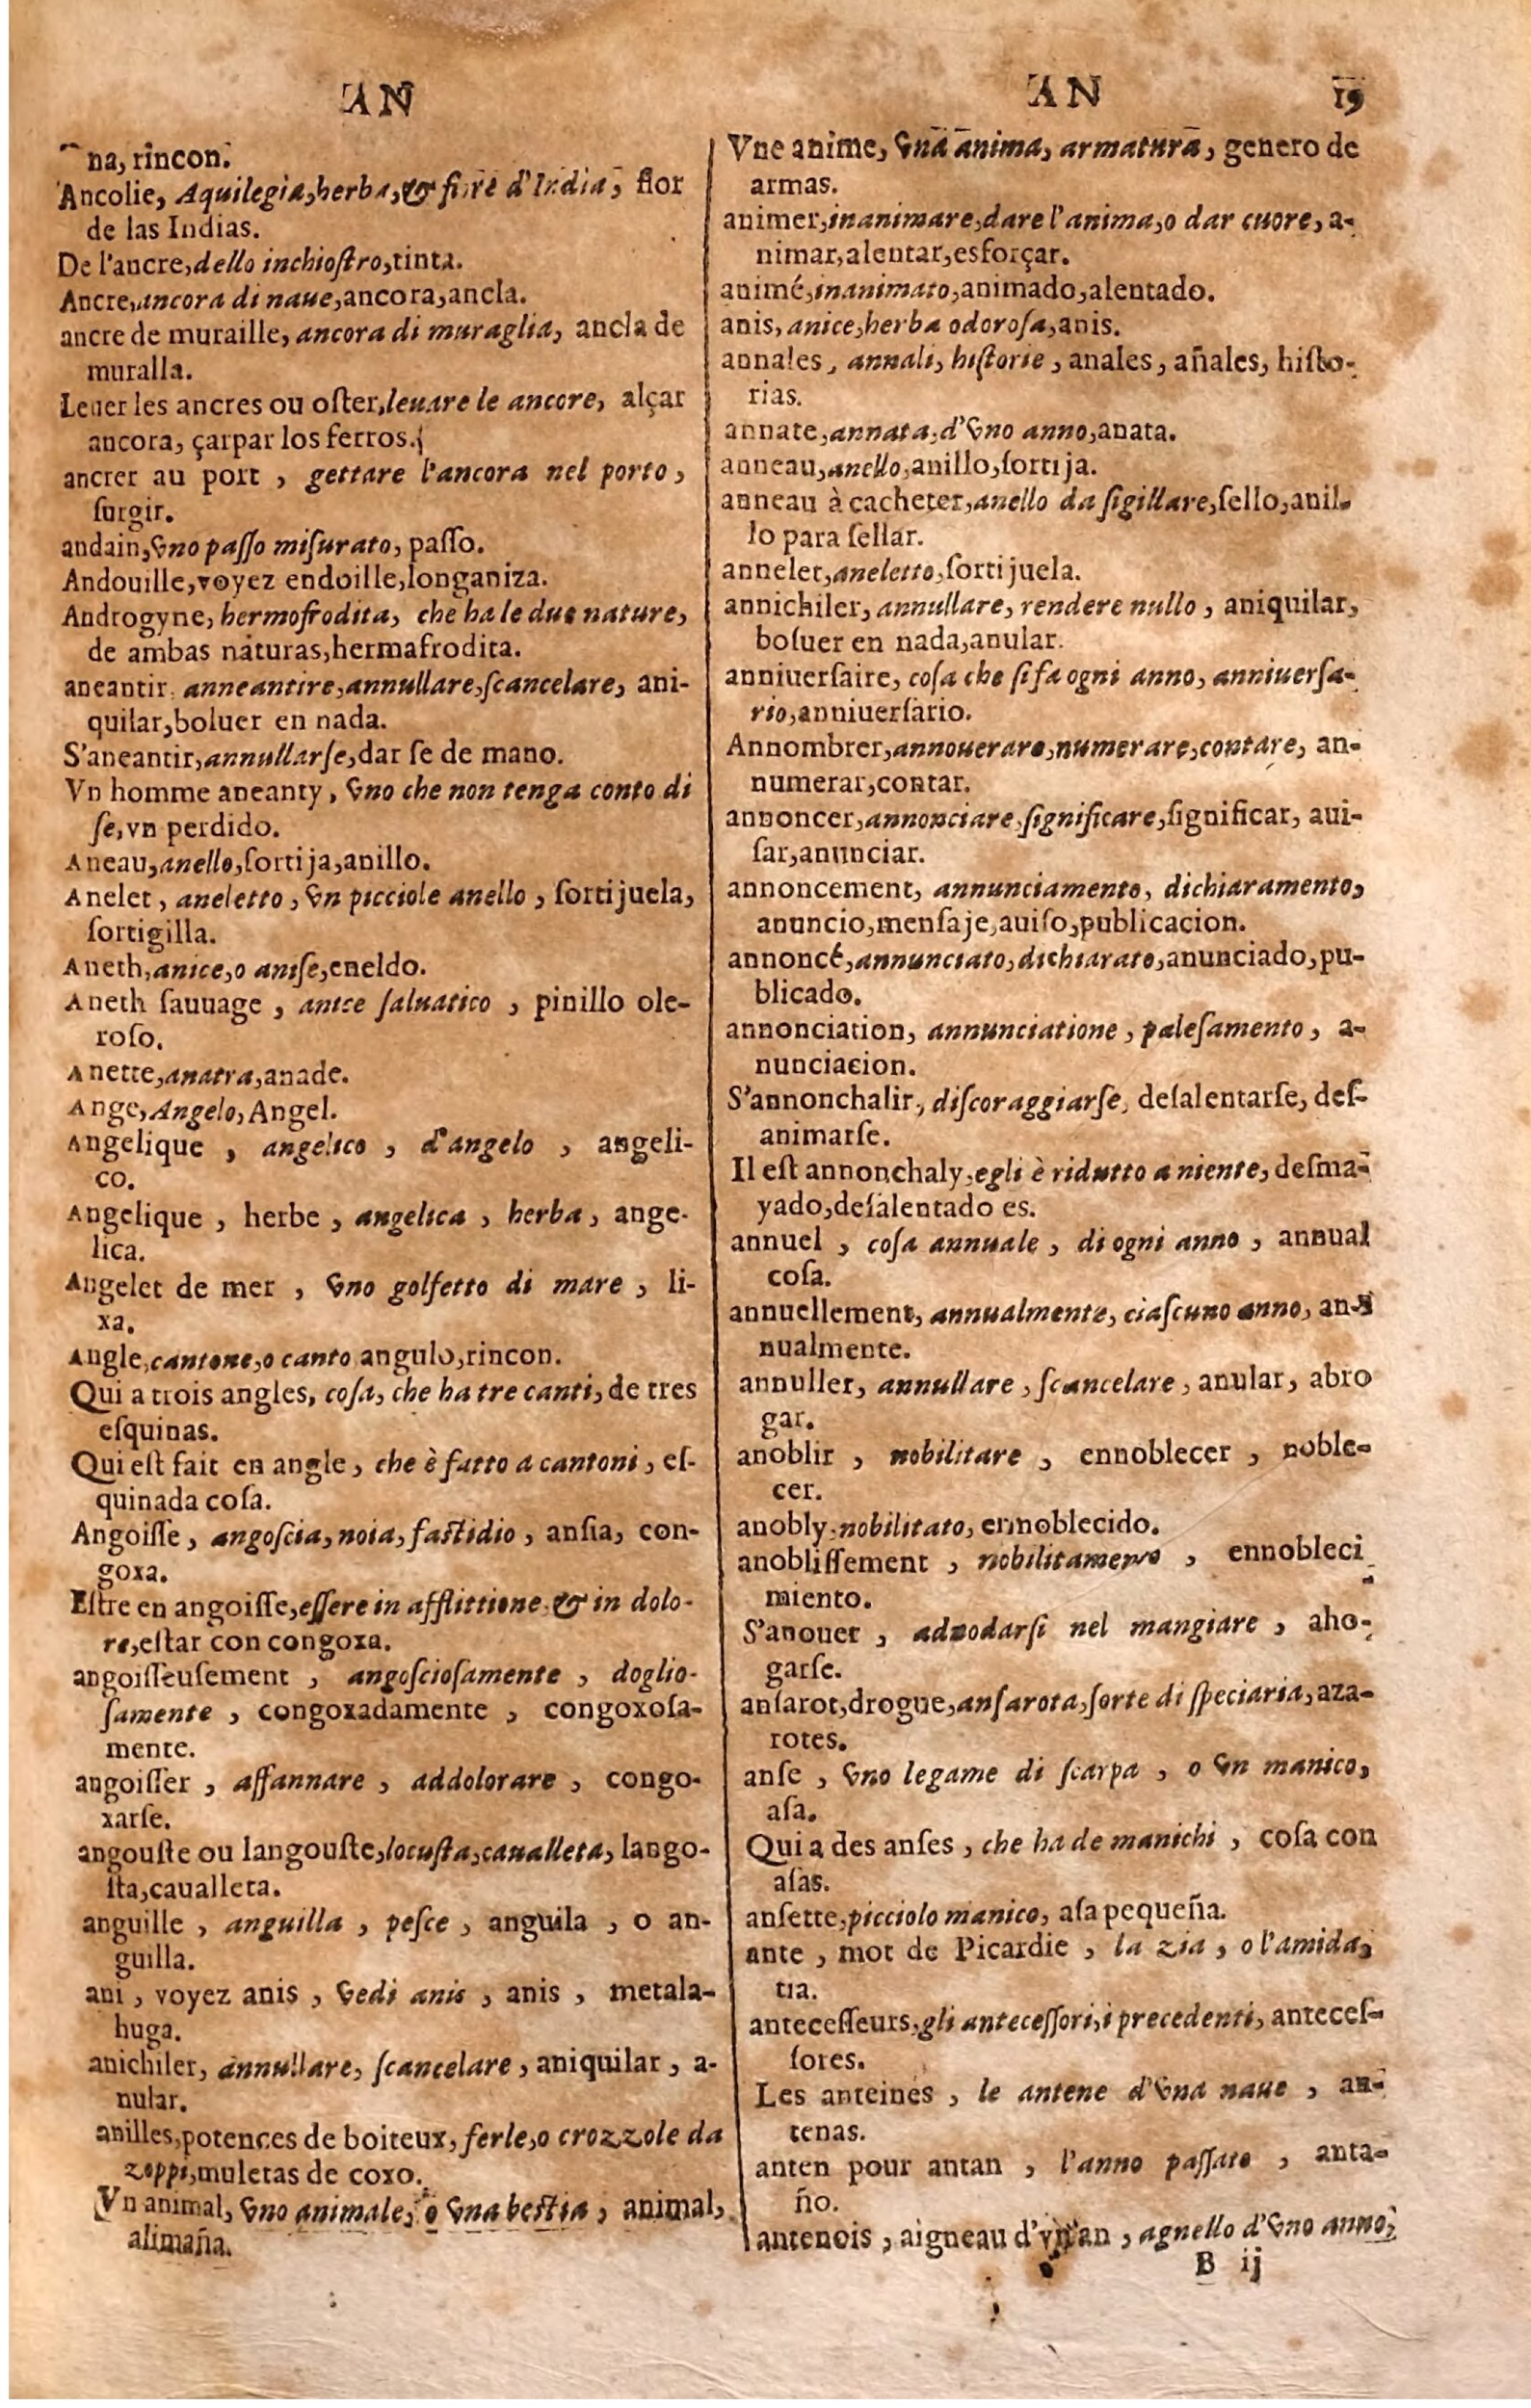 AN
na, rincon.
Ancolie, Aquilegia, herba, & fiore d'India, flor
de las Indias.
De l'ancre, dello inchioſtro, tinta.
Ancre, ancora di naue, ancora, ancla.
ancre de muraille, ancora di muraglia, ancla de
muralla.
Leuer les ancres ou oſter, leuare le ancore, alçar
ancora, çarpar los ferros.
ancrer au port, gettare l'ancora nel porto,
ſurgir.
andain, vno paſſo miſurato, paſſo.
Andouille, voyez endoille, longaniza.
Androgyne, hermofrodita, che ha le due nature,
de ambas naturas, hermafrodita.
aneantir, anneantire, annullare, ſcancelare, ani-
quilar, boluer en nada.
S'aneantir, annullarſe, dar ſe de mano.
Vn homme aneanty, vno che non tenga conto di
ſe, vn perdido.
Aneau, anello, ſortija, anillo.
Anelet, aneletto, vn picciole anello, ſortijuela,
ſortigilla.
Aneth, anice, o aniſe, eneldo.
Aneth ſauuage, anice ſaluatico, pinillo ole-
roſo.
Anette, anatra, anade.
Ange, Angelo, Angel.
Angelique, angelico, d'angelo, angeli-
co.
Angelique, herbe, angelica, herba, ange-
lica.
Angelet de mer, vno golfetto di mare, li-
xa.
Angle, cantone, o canto angulo, rincon.
Qui a trois angles, coſa, che ha tre canti, de tres
eſquinas.
Qui eſt fait en angle, che è fatto a cantoni, eſ-
quinada coſa.
Angoiſſe, angoſcia, noia, faſtidio, anſia, con-
goxa.
Eſtre en angoiſſe, eſſere in afflittione & in dolo-
re, eſtar con congoxa.
angoiſſeuſement, angoſcioſamente, doglio-
ſamente, congoxadamente, congoxoſa-
mente.
angoiſſer, affannare, addolorare, congo-
xarſe.
angouſte ou langouſte, locuſta, caualleta, lango-
ſta, caualleta.
anguille, anguilla, peſce, anguila, o an-
guilla.
ani, voyez anis, vedi anis, anis, metala-
huga.
anichiler, annullare, ſcancelare, aniquilar, a-
nular.
anilles, potences de boiteux, ferle, o crozzole da
zoppi, muletas de coxo.
Vn animal, vno animale, o vna beſtia, animal,
alimaña.
AN 19
Vne anime, vna anima, armatura, genero de
armas.
animer, inanimare, dare l'anima, o dar cuore, a-
nimar, alentar, esforçar.
animé, inanimato, animado, alentado.
anis, anice, herba odoroſa, anis.
annales, annali, hiſtorie, anales, añales, hiſto-
rias.
annate, annata, d'vno anno, anata.
anneau, anello, anillo, ſortija.
anneau à cacheter, anello da ſigillare, ſello, anil-
lo para ſellar.
annelet, aneletto, ſortijuela.
annichiler, annullare, rendere nullo, aniquilar,
boluer en nada, anular.
anniuerſaire, coſa che ſi fa ogni anno, anniuerſa-
rio, anniuerſario.
Annombrer, annouerare, numerare, contare, an-
numerar, contar.
annoncer, annonciare, ſignificare, ſignificar, aui-
ſar, anunciar.
annoncement, annunciamento, dichiaramento,
anuncio, menſaje, auiſo, publicacion.
annoncé, annunciato, dichiarato, anunciado, pu-
blicado.
annonciation, annunciatione, paleſamento, a-
nunciacion.
S'annonchalir, diſcoraggiarſe, deſalentarſe, deſ-
animarſe.
Il eſt annonchaly, egli è ridutto a niente, deſma-
yado, deſalentado es.
annuel, coſa annuale, di ogni anno, annual
coſa.
annuellement, annualmente, ciaſcuno anno, an-
nualmente.
annuller, annullare, ſcancelare, anular, abro
gar.
anoblir, nobilitare, ennoblecer, noble-
cer.
anobly, nobilitato, ennoblecido.
anobliſſement, nobilitamento, ennobleci
miento.
S'anouer, adnodarſi nel mangiare, aho-
garſe.
anſarot, drogue, anſarota, ſorte di ſpeciaria, aza-
rotes.
anſe, vno legame di ſcarpa, o vn manico,
aſa.
Qui a des anſes, che ha de manichi, coſa con
aſas.
anſette, picciolo manico, aſa pequeña.
ante, mot de Picardie, la zia, o l'amida,
tia.
anteceſſeurs, gli anteceſſori, i precedenti, anteceſ-
ſores.
Les anteines, le antene d'vna naue, an-
tenas.
anten pour antan, l'anno paſſato, anta-
ño.
antenois, aigneau d'vn an, agnello d'vno anno,
B ij